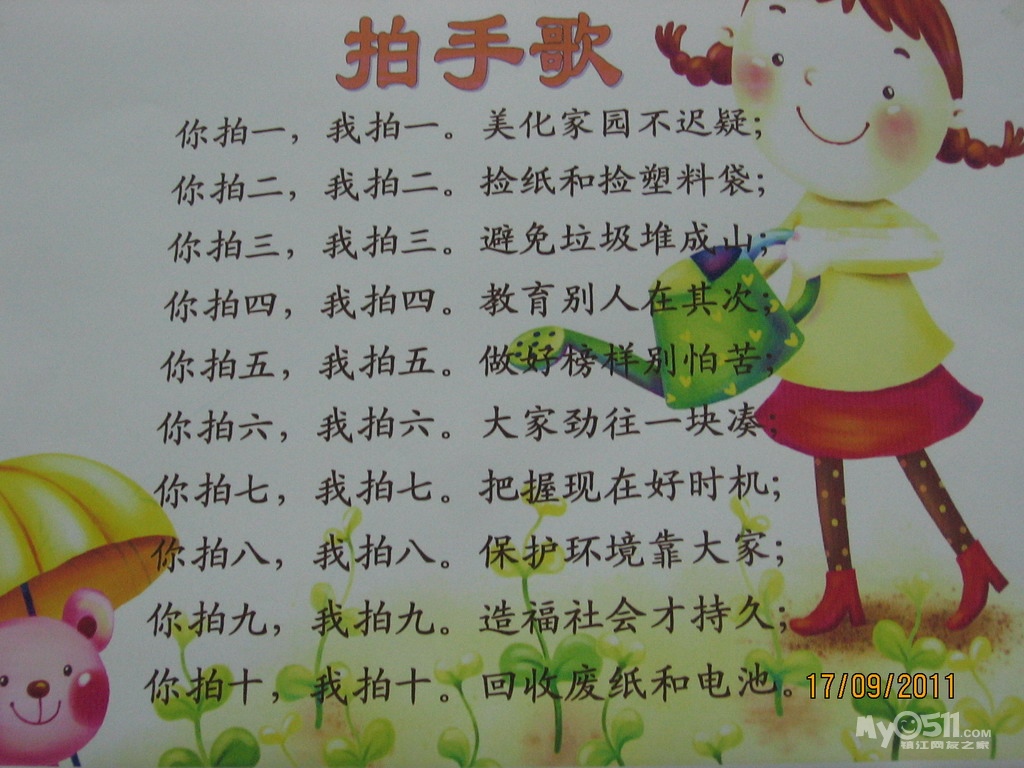 拍手歌
你拍一，我拍一。美化家园不迟疑；
你拍二，我拍二。捡纸和捡塑料袋；
你拍三，我拍三。避免垃圾堆成山；
你拍四，我拍四。教育别人在其次；
你拍五，我拍五。做好榜样别怕苦；
你拍六，我拍六。大家劲往一块凑；
你拍七，我拍七。把握现在好时机；
你拍八，我拍八。保护环境靠大家；
你拍九，我拍九。造福社会才持久；
你拍十，我拍十。回收废纸和电池。
17/09/2011
My0511.COM
镇江网友之家